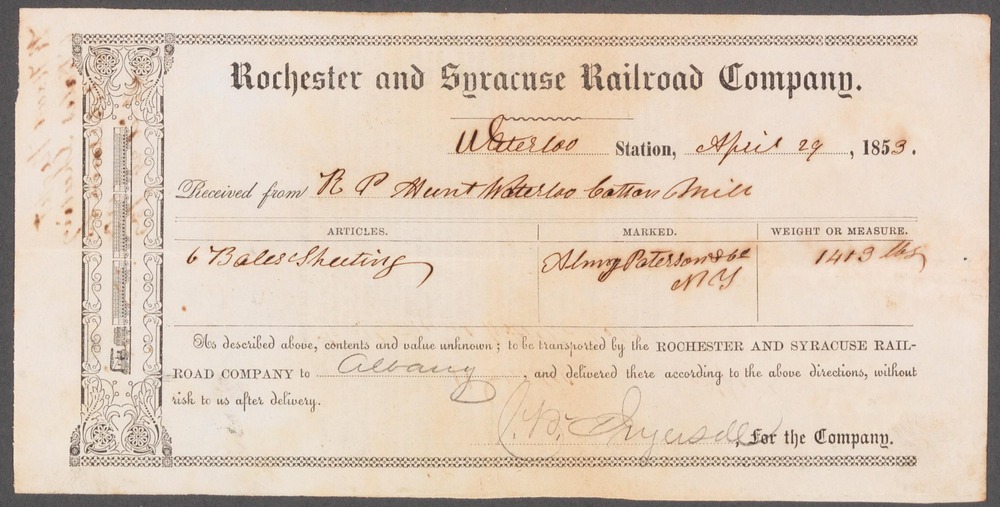 Rochester and Syracuse Railroad Company.
Waterloo Station, April 29, 1853.
Received from R P Hunt Waterloo Cotton Mill
ARTICLES. MARKED. WEIGHT OR MEASURE.
6 Bales Sheeting Almy Paterson & Co 1413 lbs
N Y
As described above, contents and value unknown; to be transported by the ROCHESTER AND SYRACUSE RAIL-
ROAD COMPANY to Albany, and delivered there according to the above directions, without
risk to us after delivery.
Ingersoll, For the Company.